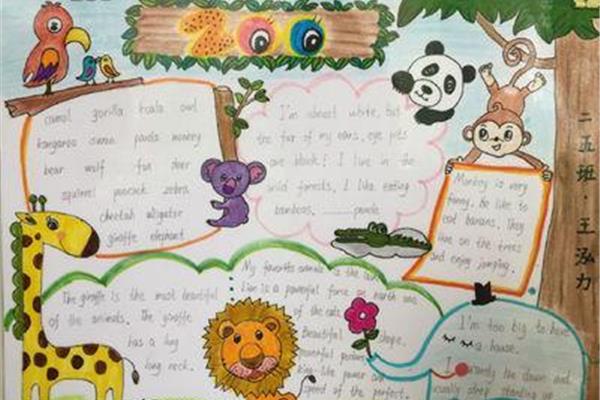 ZOO
camel gorilla koala owl
kangaroo swan panda monkey
bear wolf fun deer
squirrel peacock zebra
cheetah aligator
giraffe elephant
I'm almost white, but
the fur of my ears, eye pits
are black! I live in the
wild forests. I like eating
bamboos. panda
Monkey is very
funny. He like to
eat banans. They
live on the trees
and enjoy jumping.
The giraffe is the most beautiful
of the animals. The giraffe
has a long
long neck.
My favorite animals is the
Lion is a powerful force
of the cats
Beautiful shape.
powerful
king-like power
speed of the perfect.
I'm too big to have
a house.
I lie down and
usually sleep standing up
二五班·王泓力